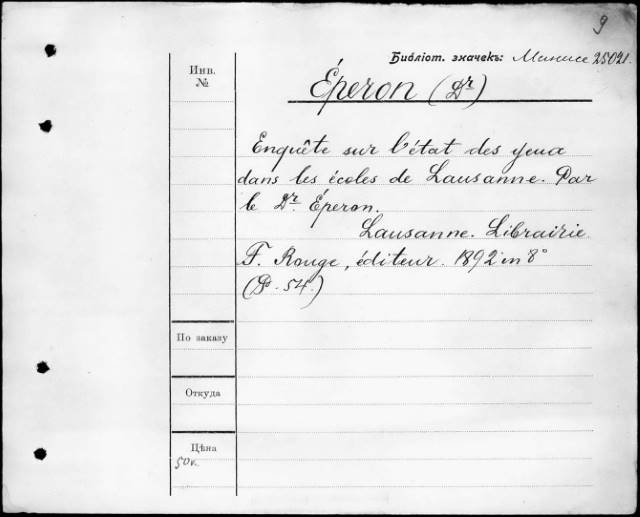 9
Библіот. значекъ: 25021.
Инв.
№
Éperon (Dr)
Enquête sur l'état des yeux
dans les écoles de Lausanne. Par
le Dr. Éperon.
Lausanne. Librairie
F. Rouge, éditeur. 1892 in 8°
(P. 54.)
По заказу
Откуда
Цѣна
50 к.